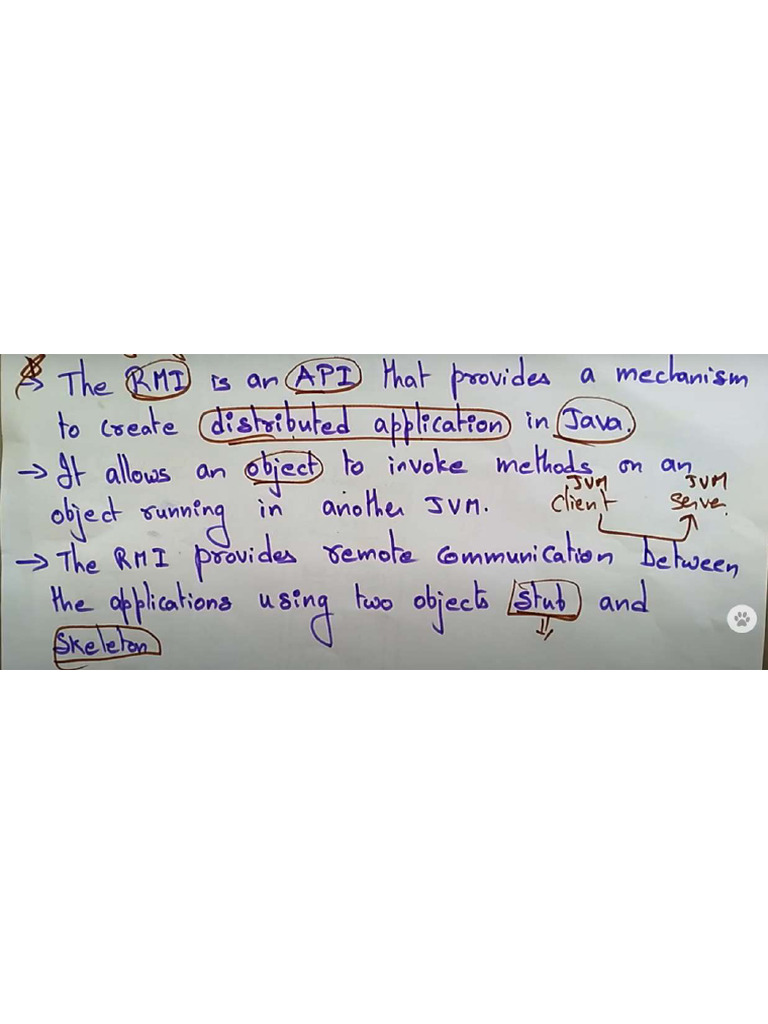 → The RMI is an API that provides a mechanism
to create distributed application in Java.
→ It allows an object to invoke methods on an
JVM JVM
object running in another JVM. client server.
→ The RMI provides remote communication between
the applications using two objects stub and
skeleton